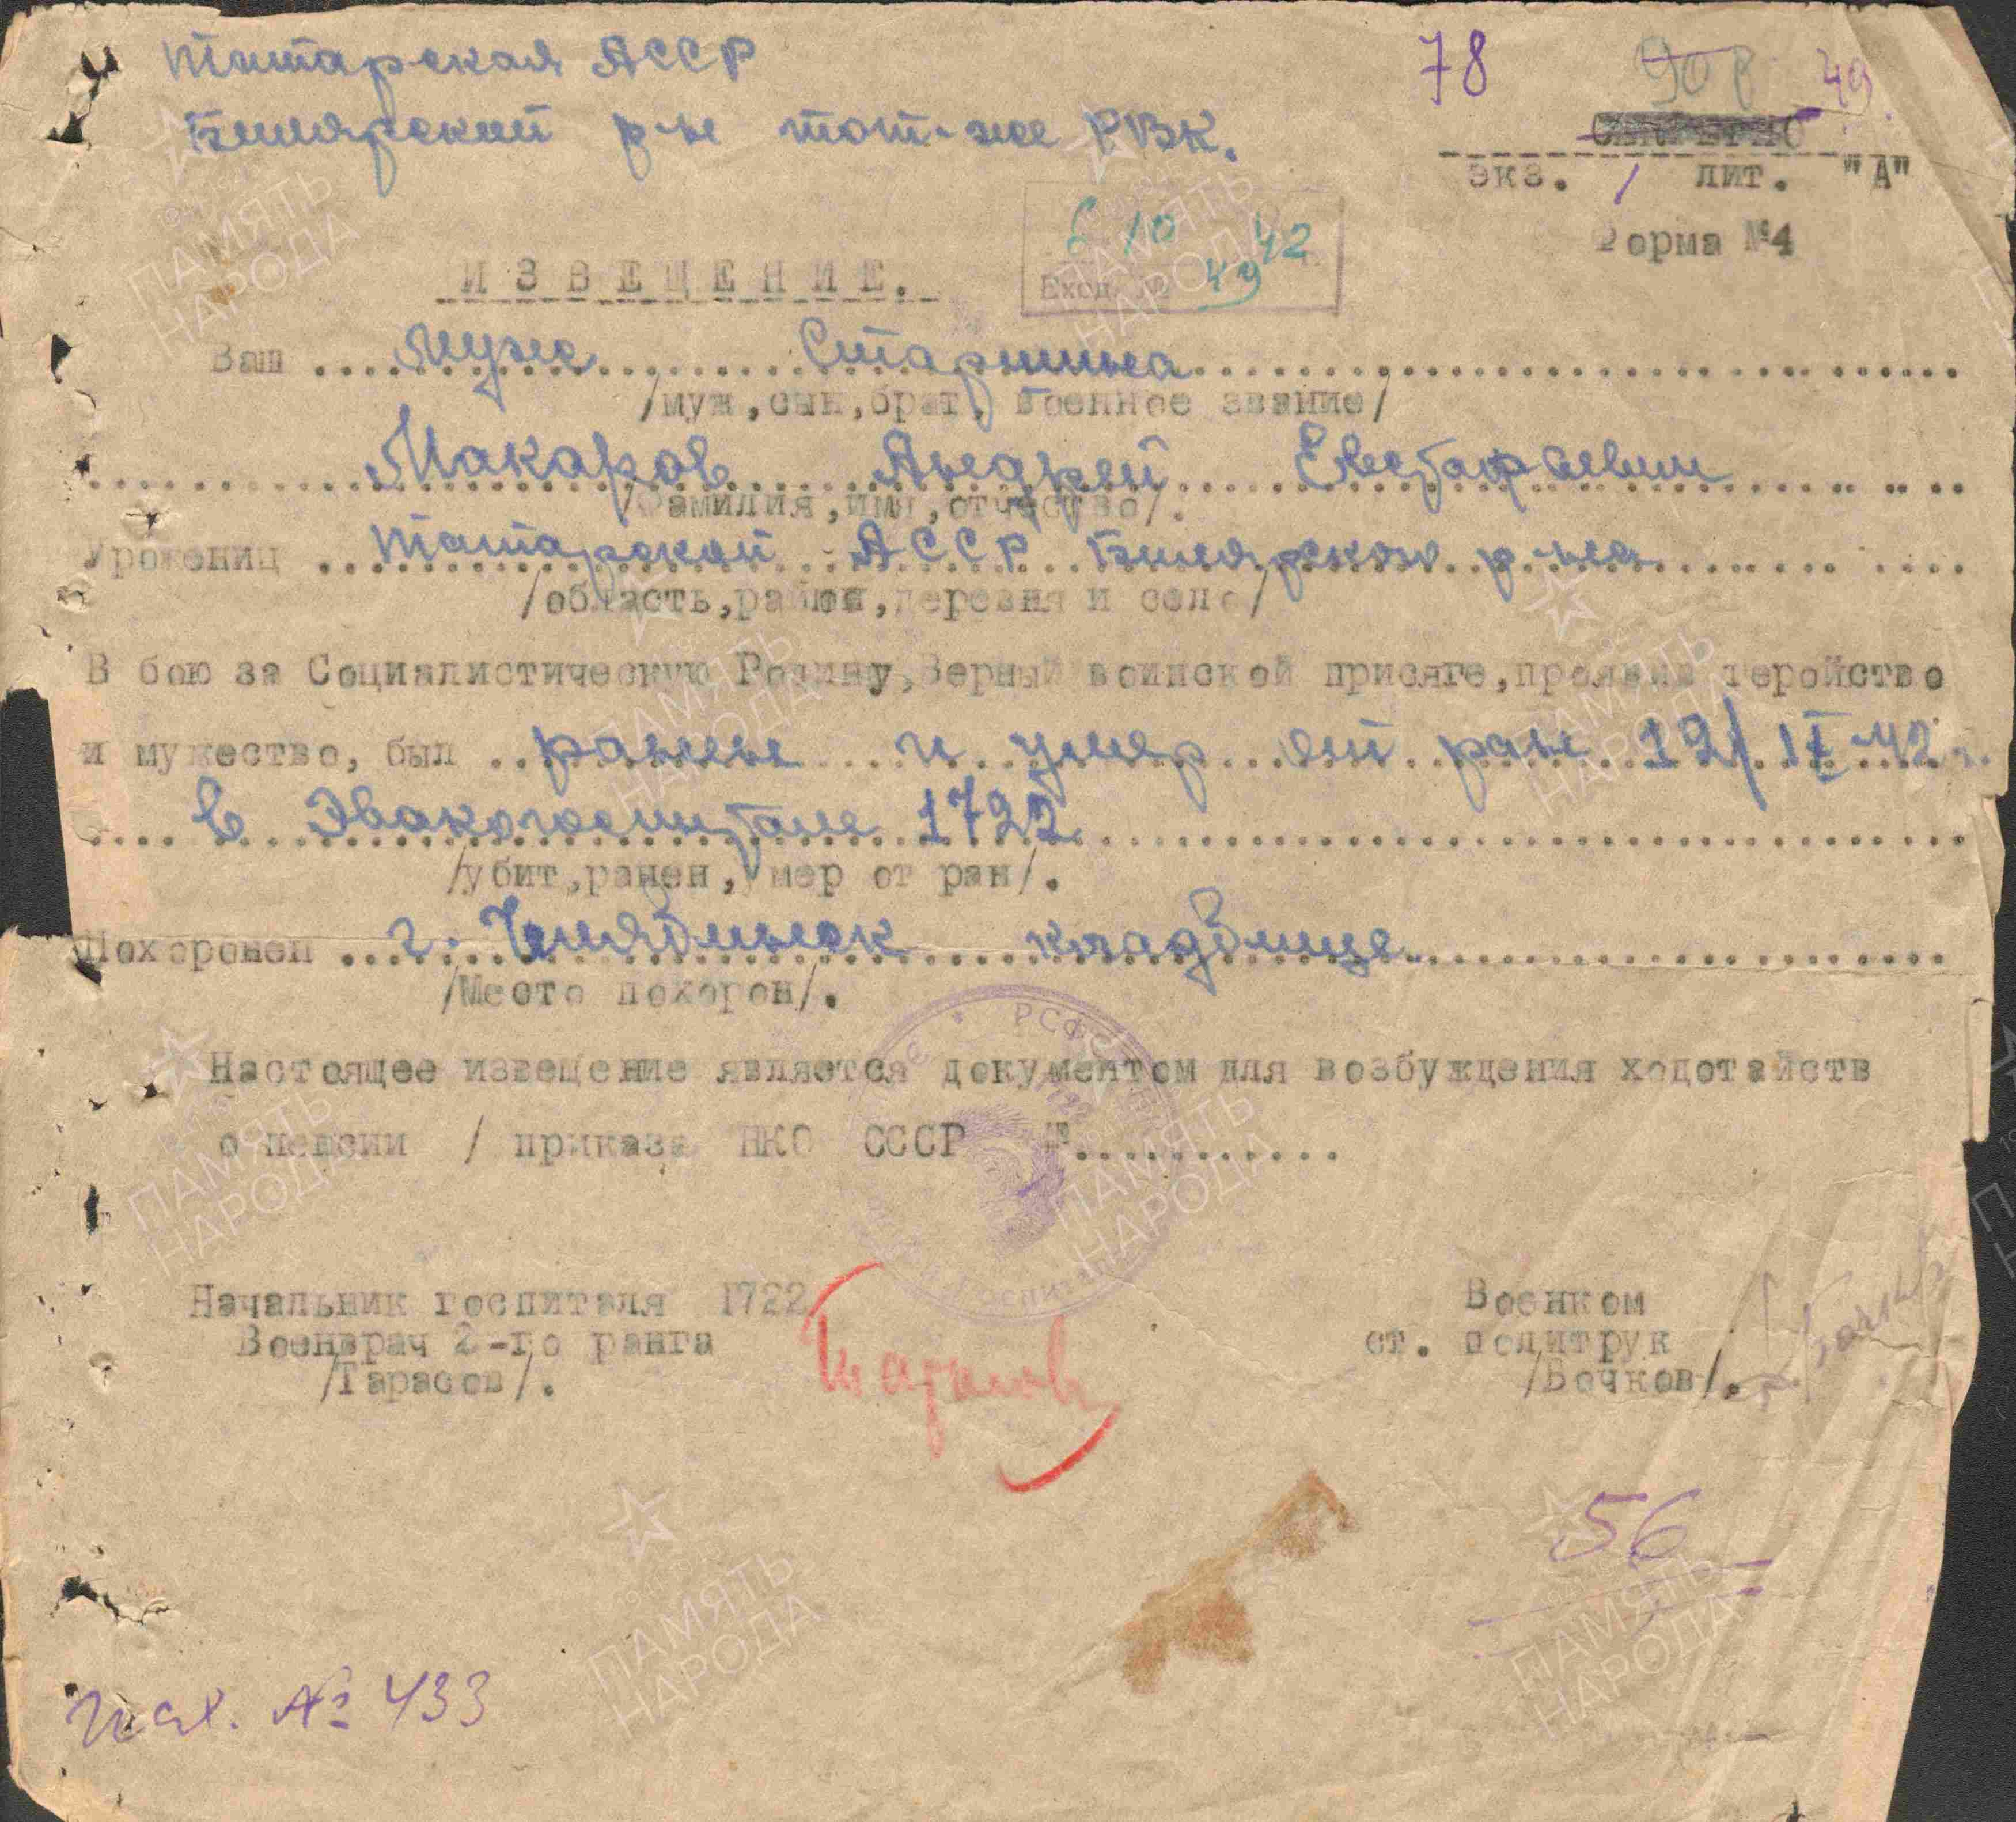 Татарская АССР
78 49
Билярский р-н тот-же РВК.
СЕКРЕТНО
экз. 1 лит. "А"
Форма №4
6 10 42
Вход. № 49
ИЗВЕЩЕНИЕ.
Ваш .... муж ...... Старшина ......
/муж, сын, брат, военное звание/
...... Макаров .... Андрей .... Евстафаевич ......
/Фамилия, имя, отчество/.
Уроженец ... Татарской АССР Билярского р-на ......
/область, район, деревня и село/
В бою за Социалистическую Родину, Верный воинской присяге, проявив геройство
и мужество, был .. ранен и умер от ран 19/IX-42 г.
.... в Эвакогоспитале 1722 ......
/убит, ранен, умер от ран/.
Похоронен ... г. Челябинск кладбище ......
/Место похорон/.
Настоящее извещение является документом для возбуждения ходотайств
о пенсии / приказа НКО СССР №...........
Начальник госпиталя 1722
Военком
Военврач 2-го ранга
ст. политрук
/Тарасов/.
/Бочков/.
Тарасов
56
Исх. № 433
ПАМЯТЬ
НАРОДА